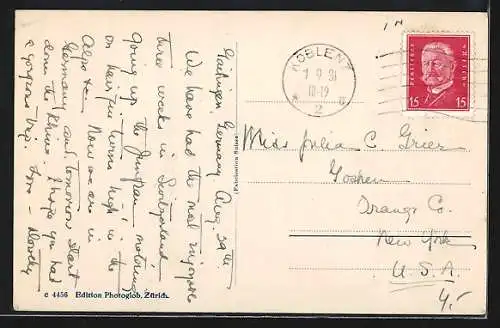 Germany Aug. 29th.
We have had the most enjoyable
three weeks in Switzerland
going up the Jungfrau motoring
on hairpin turns high in the
Alps etc. Now we are in
Germany and tomorrow start
down the Rhine. I hope you had
a gorgeous trip. Love - Dorothy
c 4456 Edition Photoglob, Zürich.
KOBLENZ
1 9 31
18-19
2
DEUTSCHES REICH
15 15
Miss Julia C Grier
Goshen
Orange Co.
New York
U.S.A
4,-